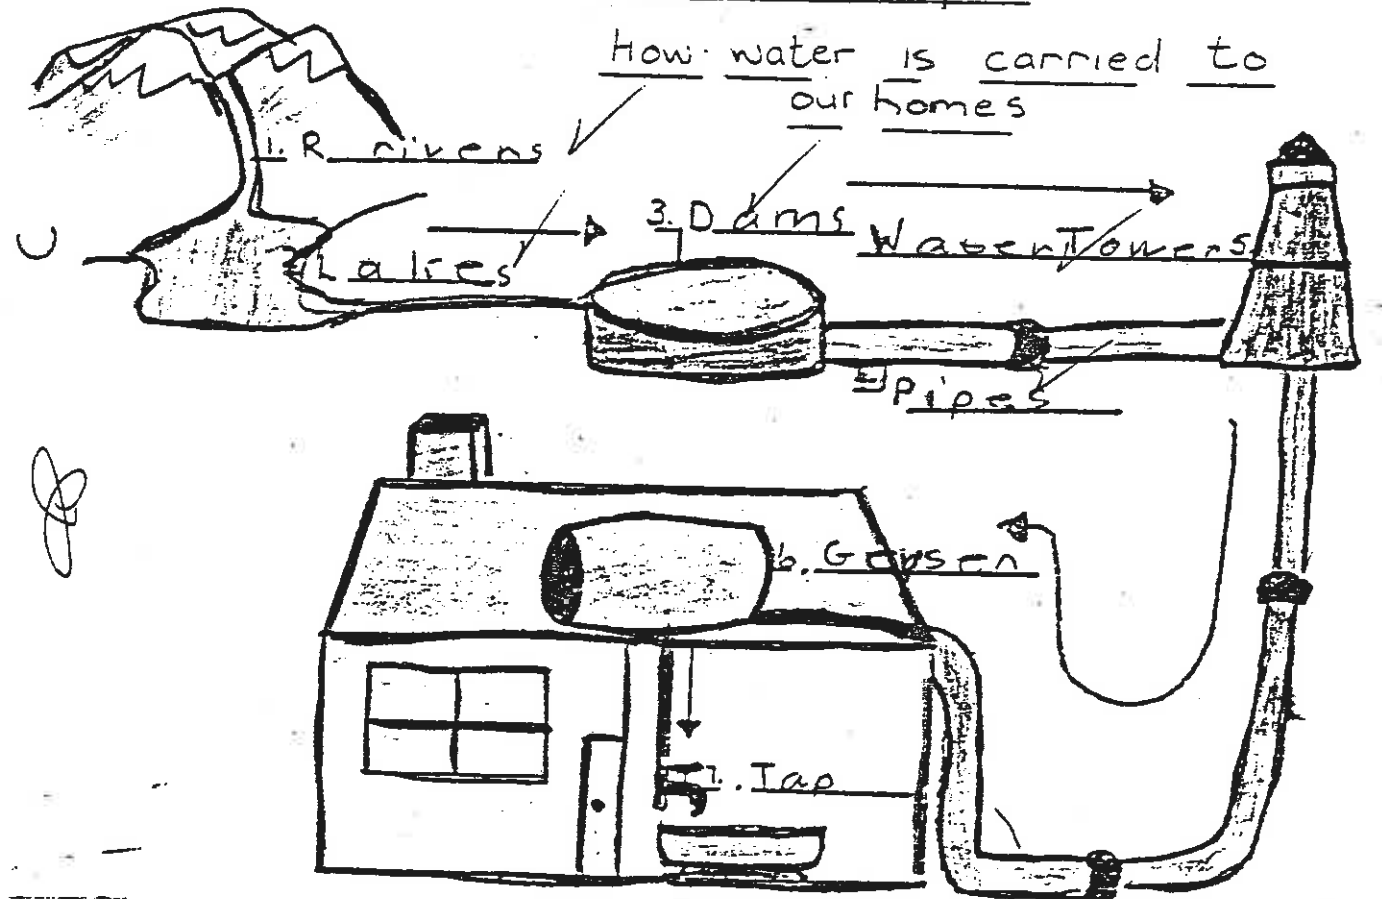 How water is carried to
our homes
1. R rivers
3. Dams
Water Towers
Lakes
Pipes
6. Geysen
7. Tap